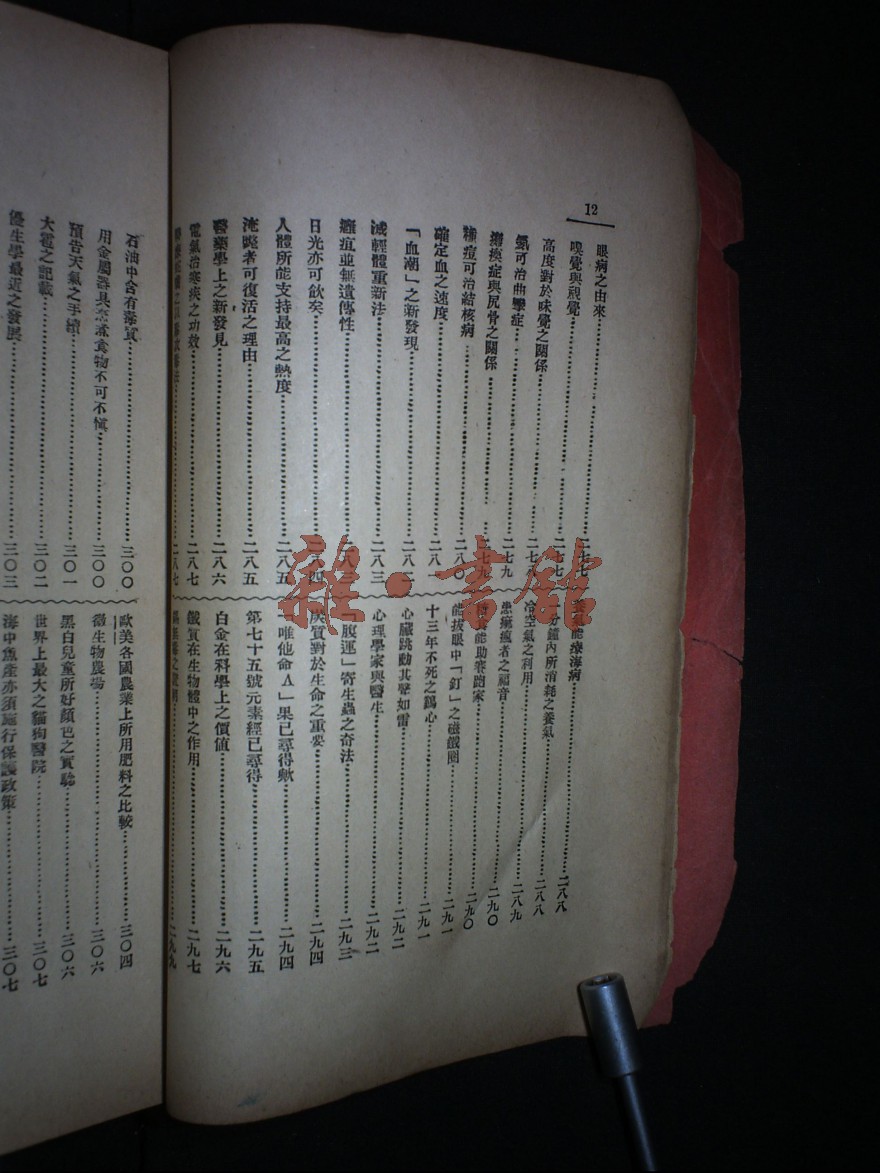 12
眼病之由來……二七七
嗅覺與視覺……二七七
高度對於味覺之關係……二七九
氨可治曲攣症……二七九
癱瘓症與尻骨之關係……二七九
種痘可治結核病……二八〇
確定血之速度……二八一
「血潮」之新發現……二八二
減輕體重新法……二八三
癧疽並無遺傳性……二八三
日光亦可飲矣……二八四
人體所能支持最高之熱度……二八五
淹斃者可復活之理由……二八五
醫藥學上之新發見……二八六
電氣治寒疾之功效……二八七
二八七
養氣能療海病……二八八
一分鐘內所消耗之養氣……二八八
冷空氣之利用……二八九
患癩瘋者之福音……二九〇
能助賽跑家……二九〇
能拔眼中「釘」之磁鐵圈……二九一
十三年不死之鷄心……二九一
心臟跳動其聲如雷……二九二
心理學家與醫生……二九二
「腹運」寄生蟲之奇法……二九三
炭質對於生命之重要……二九四
「唯他命A」果已尋得歟……二九四
第七十五號元素經已尋得……二九五
白金在科學上之價值……二九六
鐵質在生物體中之作用……二九七
二九九
石油中含有毒質……三〇〇
用金屬器具烹煮食物不可不慎……三〇〇
預告天氣之手續……三〇一
大雹之記載……三〇二
優生學最近之發展……三〇三
歐美各國農業上所用肥料之比較……三〇四
微生物農場……三〇六
黑白兒童所好顏色之實驗……三〇六
世界上最大之貓狗醫院……三〇七
海中魚產亦須施行保護政策……三〇七
雜·書館